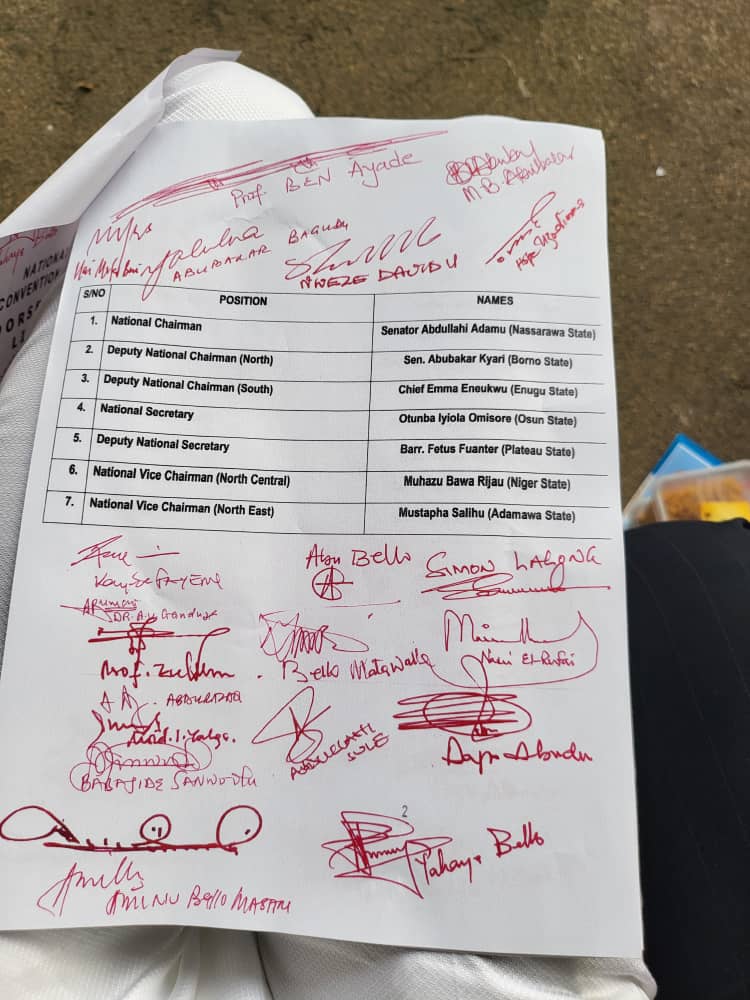 Prof. BEN Ayade
M.B. Abubakar
ABUBAKAR BAGUDU
NWEZE DAVIDU
Hope Uzodimma
NATIONAL
CONVENTION
S/NO POSITION NAMES
1. National Chairman Senator Abdullahi Adamu (Nassarawa State)
2. Deputy National Chairman (North) Sen. Abubakar Kyari (Borno State)
3. Deputy National Chairman (South) Chief Emma Eneukwu (Enugu State)
4. National Secretary Otunba Iyiola Omisore (Osun State)
5. Deputy National Secretary Barr. Fetus Fuanter (Plateau State)
6. National Vice Chairman (North Central) Muhazu Bawa Rijau (Niger State)
7. National Vice Chairman (North East) Mustapha Salihu (Adamawa State)
Abu Bello
SIMON LALONG
Kayode FAYEMI
DR. A.U. Ganduje
Prof. Zulum
Bello Matawalle
Nasir El-Rufai
A A. ABDULRAZAQ
ABDULLAHI
SULE
Dapo Abiodun
BABAJIDE SANWOOLU
2
Yahaya Bello
AMINU Bello MASARI